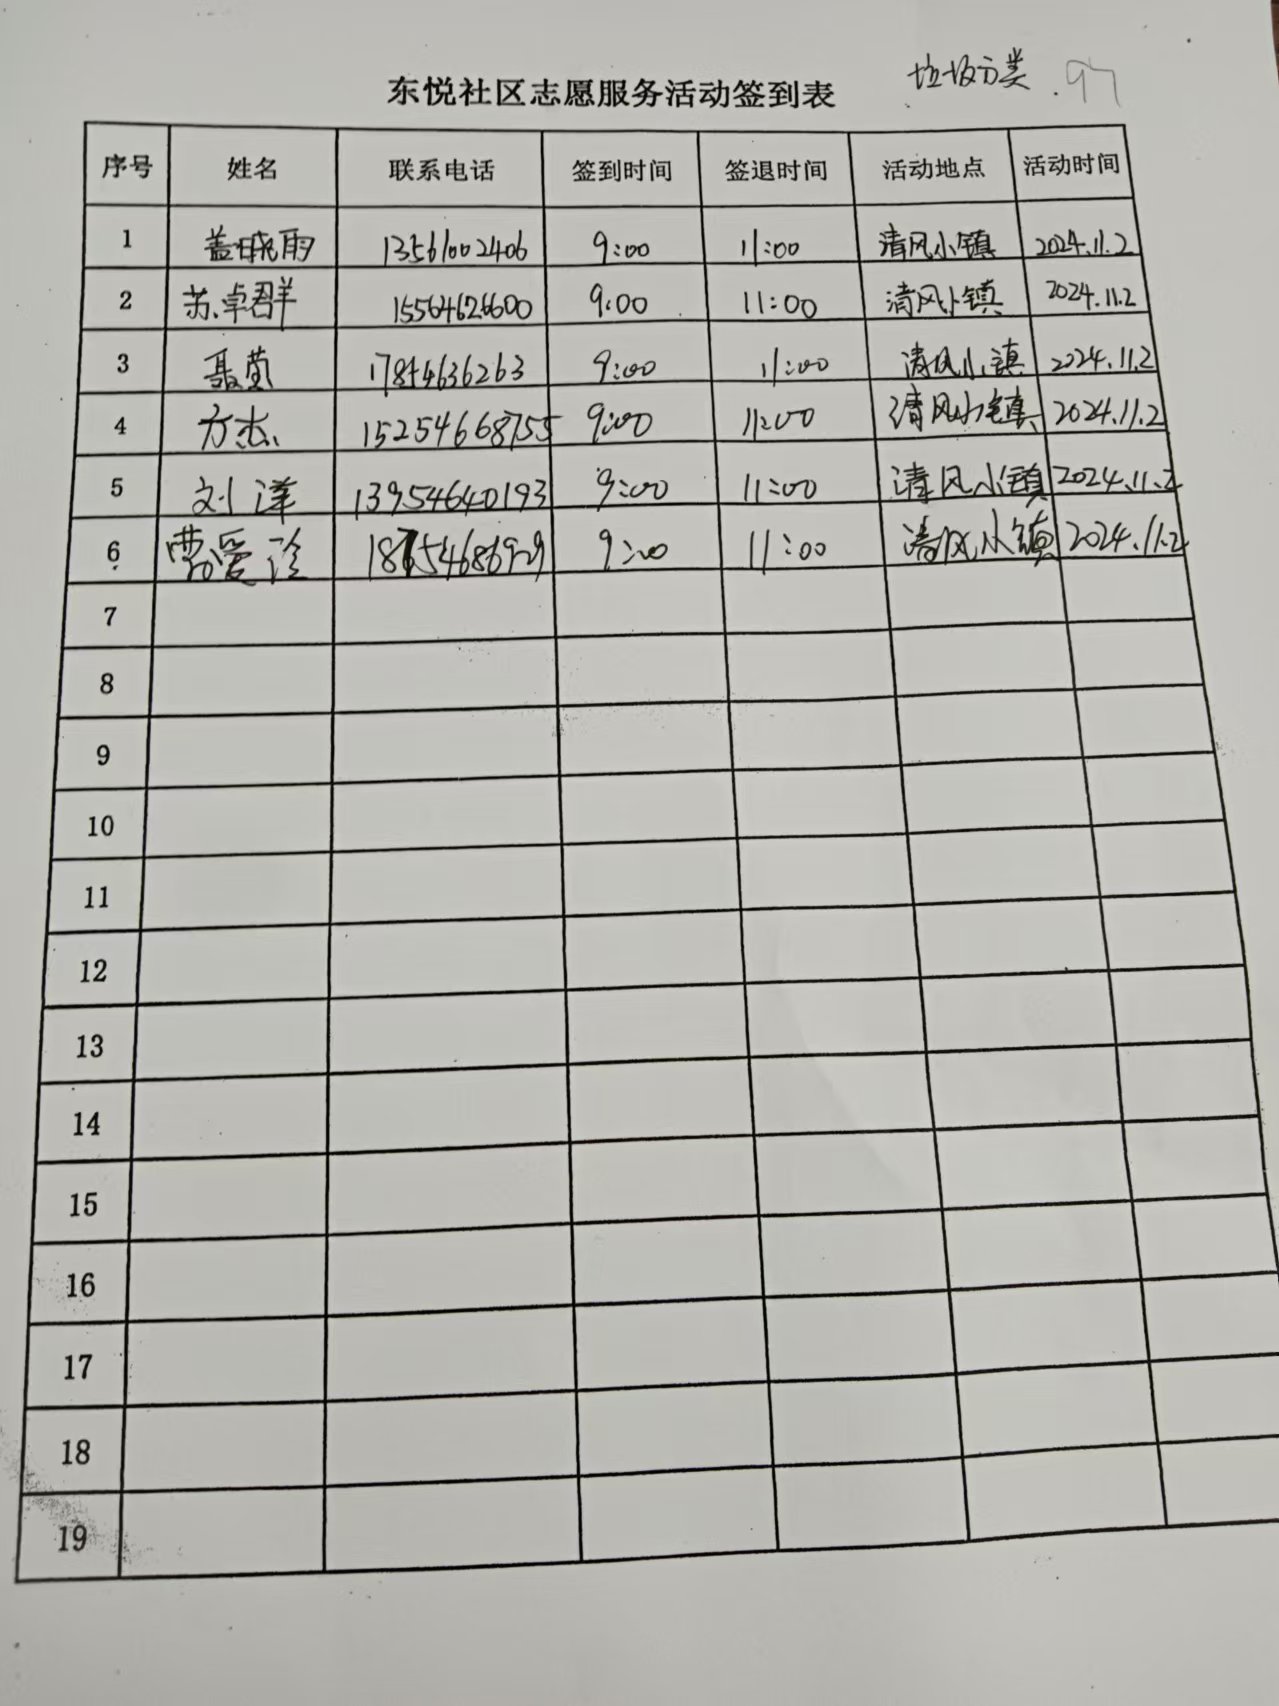 东悦社区志愿服务活动签到表 垃圾分类 97
序号 姓名 联系电话 签到时间 签退时间 活动地点 活动时间
1 盖晓雨 13561002406 9:00 11:00 清风小镇 2024.11.2
2 苏卓群 15564626600 9:00 11:00 清风小镇 2024.11.2
3 聂莹 17854636263 9:00 11:00 清风小镇 2024.11.2
4 方杰 15254668755 9:00 11:00 清风小镇 2024.11.2
5 刘洋 13954640193 9:00 11:00 清风小镇 2024.11.2
6 爱 9:00 11:00 清风小镇 2024.11.2
7
8
9
10
11
12
13
14
15
16
17
18
19